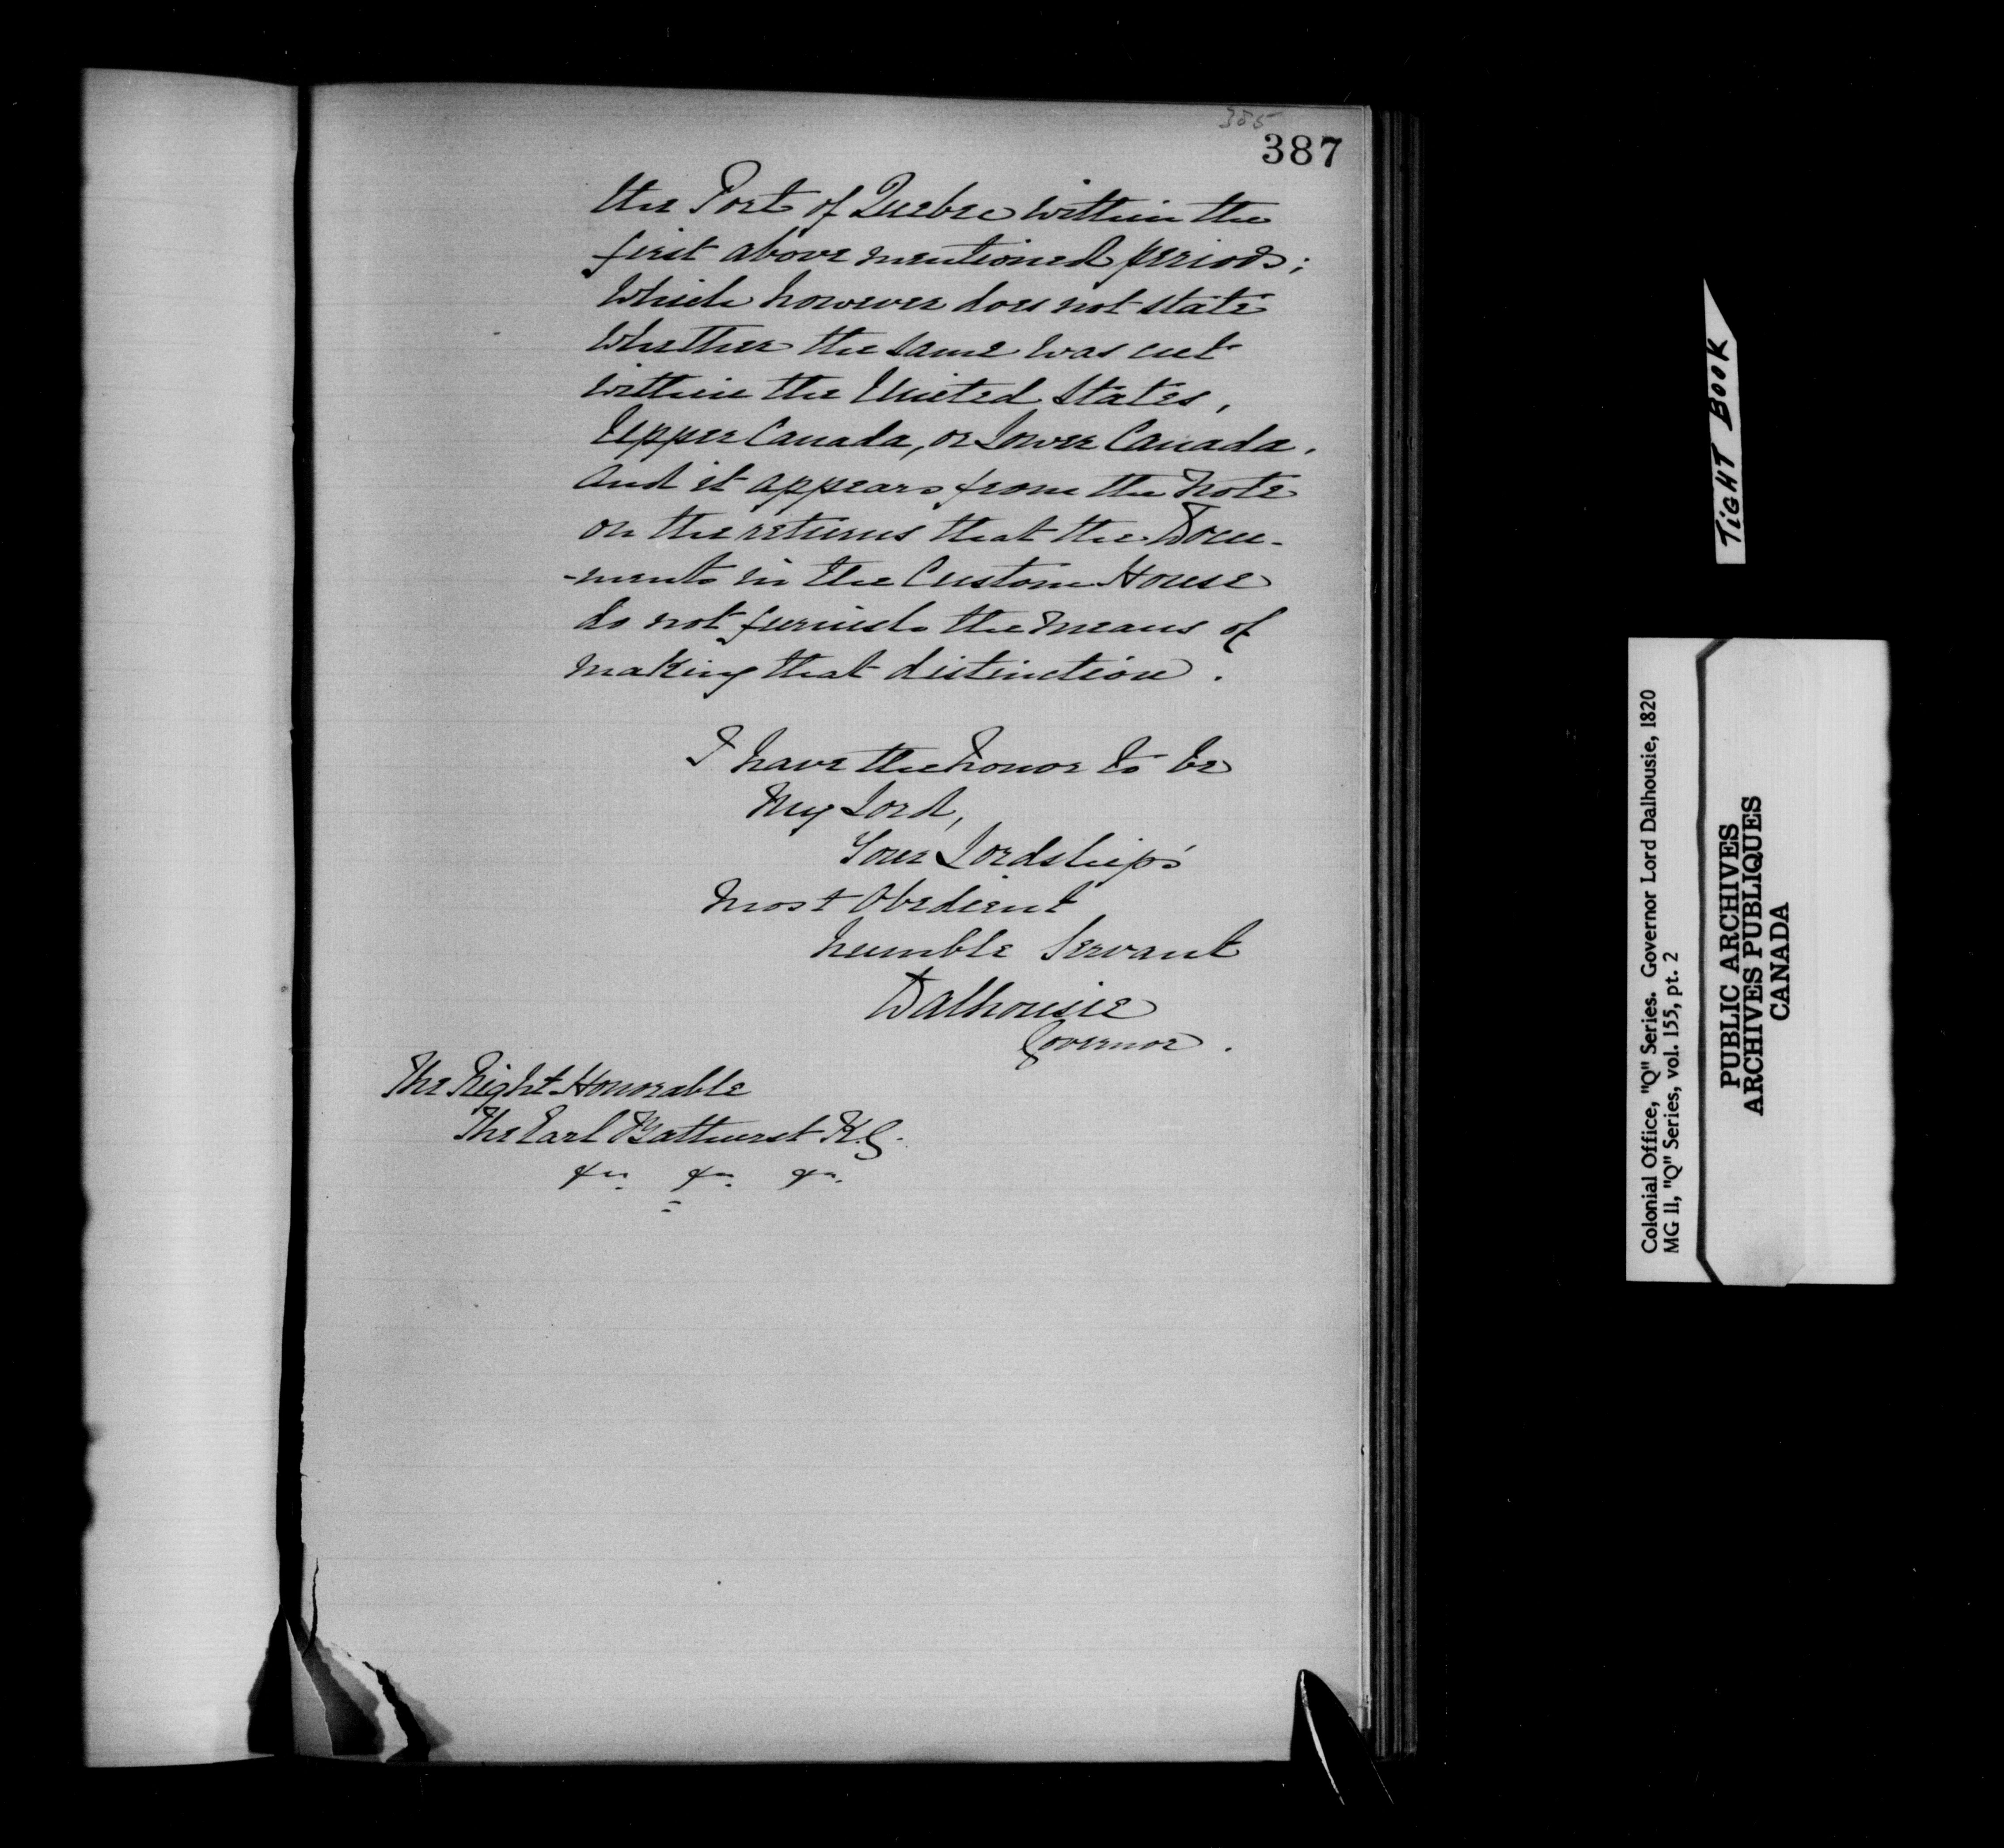 385
387
the Port of Quebec within the
first above mentioned periods;
Which however does not state
Whether the same was cut
within the United States,
Upper Canada, or Lower Canada.
And it appears from the Note
on the returns that the Docu-
-ments in the Custom House
do not furnish the means of
making that distinction.
I have the honor to be
My Lord,
Your Lordship's
Most Obedient
humble Servant
Dalhousie
Governor.
The Right Honorable
The Earl Bathurst K.G.
&c. &c. &c.
TIGHT BOOK
Colonial Office, "Q" Series. Governor Lord Dalhousie, 1820
MG 11, "Q" Series, vol. 155, pt. 2
PUBLIC ARCHIVES
ARCHIVES PUBLIQUES
CANADA